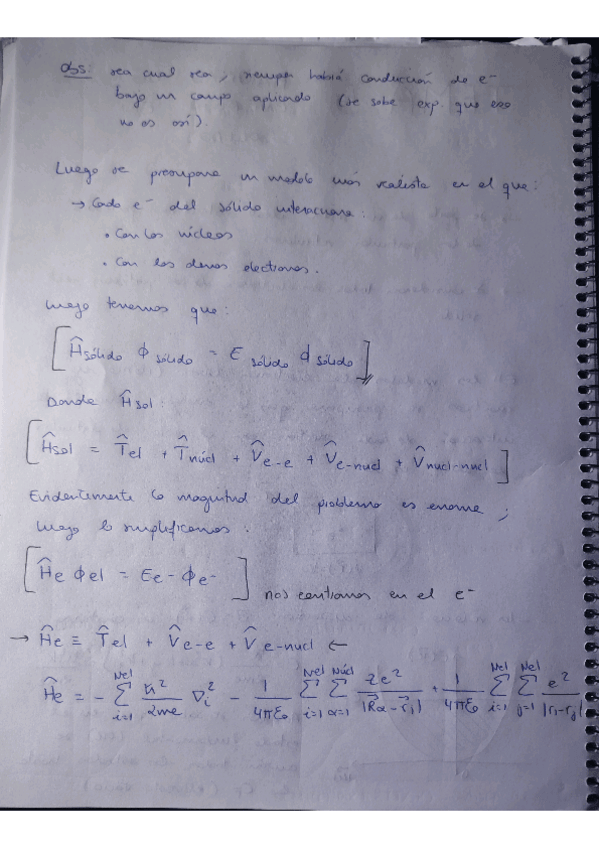 Obs: sea cual sea, siempre habrá conducción de e-
bajo un campo aplicado (se sabe exp. que eso
no es así).
Luego se presupone un modelo más realista en el que:
→ Cada e- del sólido interacciona:
• Con los núcleos
• Con los demás electrones.
Luego tenemos que:
[Ĥsólido ϕsólido = E sólido ϕsólido]
Donde Ĥsol:
[Ĥsol = T̂el + T̂núcl + V̂e-e + V̂e-nucl + V̂nucl-nucl]
Evidentemente la magnitud del problema es enorme;
luego lo simplificamos:
[Ĥe ϕel = Ee- ϕe-] nos centramos en el e-
→ Ĥe ≡ T̂el + V̂e-e + V̂e-nucl ←
Ĥe = - Σ_{i=1}^{Nel} ħ²/2me ∇i² - 1/4πε₀ Σ_{i=1}^{Nel} Σ_{α=1}^{Núcl} Ze²/|R⃗α - r⃗i| + 1/4πε₀ Σ_{i=1}^{Nel} Σ_{j=1}^{Nel} e²/|ri-rj|